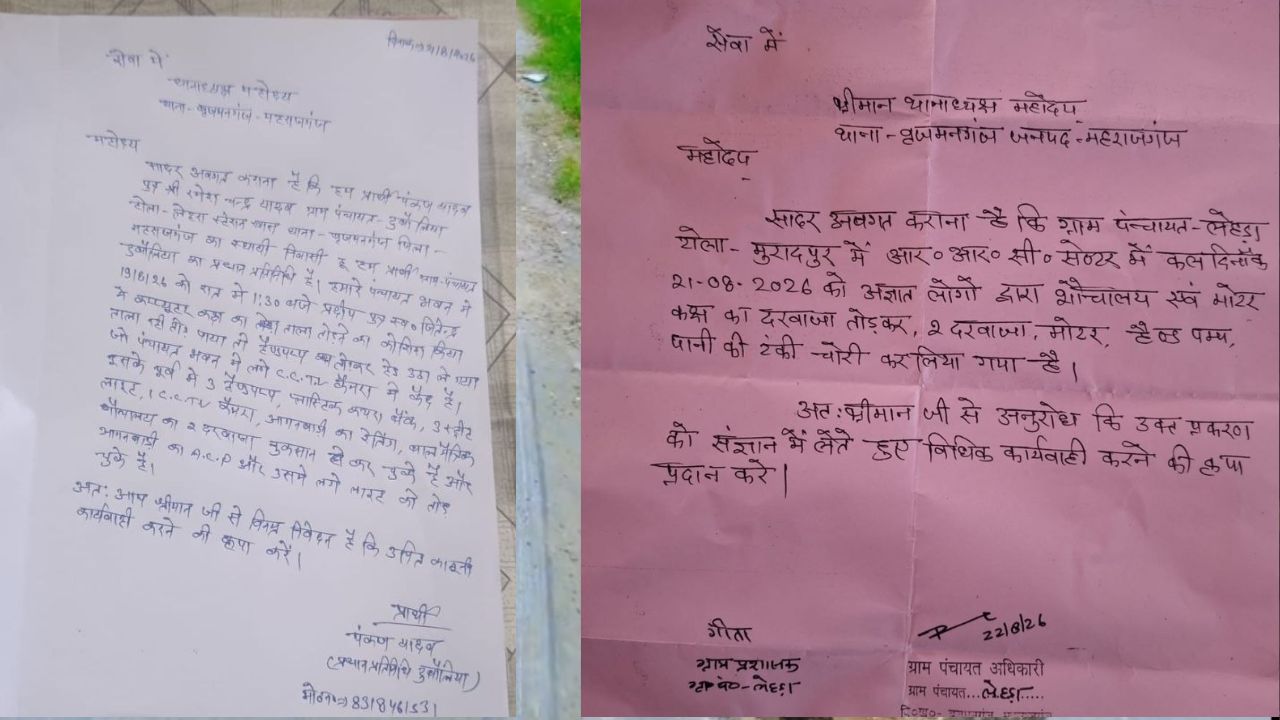 सेवा में
थानाध्यक्ष महोदय
थाना - बृजमनगंज - महराजगंज
महोदय
सादर अवगत कराना है कि हम प्रार्थी पंकज यादव
पुत्र श्री रमेश चन्द्र यादव ग्राम पंचायत - दुबौलिया
टोला - लेहरा स्टेशन थाना - बृजमनगंज जिला -
महराजगंज का स्थायी निवासी हूँ हम प्रार्थी ग्राम-पंचायत
दुबौलिया का प्रधान प्रतिनिधि है। हमारे पंचायत भवन में
को रात में 1:30 बजे प्रदीप पुत्र स्व० जितेन्द्र
ने कम्प्यूटर कक्ष का ताला तोड़ने का कोशिश किया
ताला नहीं तोड़ पाया तो हैण्डपम्प का हेड उठा ले गया
जो पंचायत भवन में लगे C.C.TV कैमरा में कैद है।
इसके पूर्व में 3 हैण्डपम्प, प्लास्टिक 3 स्ट्रीट
लाइट, 1 C.C.TV कैमरा, आंगनबाड़ी का
शौचालय का 2 दरवाजा नुकसान कर चुके हैं और
आंगनबाड़ी का A.C.P और उसमे लगे लाइट को तोड़
चुके हैं।
अतः आप श्रीमान जी से विनम्र निवेदन है कि उचित कानूनी
कार्यवाही करने की कृपा करें।
प्रार्थी
पंकज यादव
(प्रधान प्रतिनिधि दुबौलिया)
सेवा में
श्रीमान थानाध्यक्ष महोदय
थाना - बृजमनगंज जनपद - महराजगंज
महोदय
सादर अवगत कराना है कि ग्राम पंचायत - लेहड़ा
टोला - मुरादपुर में आर० आर० सी० सेण्टर में कल दिनांक
21-08-2026 को अज्ञात लोगों द्वारा शौचालय एवं मोटर
कक्ष का दरवाजा तोड़कर, 2 दरवाजा, मोटर, हैण्ड पम्प,
पानी की टंकी चोरी कर लिया गया है।
अतः श्रीमान जी से अनुरोध कि उक्त प्रकरण
को संज्ञान में लेते हुए विधिक कार्यवाही करने की कृपा
प्रदान करे।
गीता
ग्राम प्रशासक
ग्रा० पं० - लेहड़ा
22/8/26
ग्राम पंचायत अधिकारी
ग्राम पंचायत...लेहड़ा.....